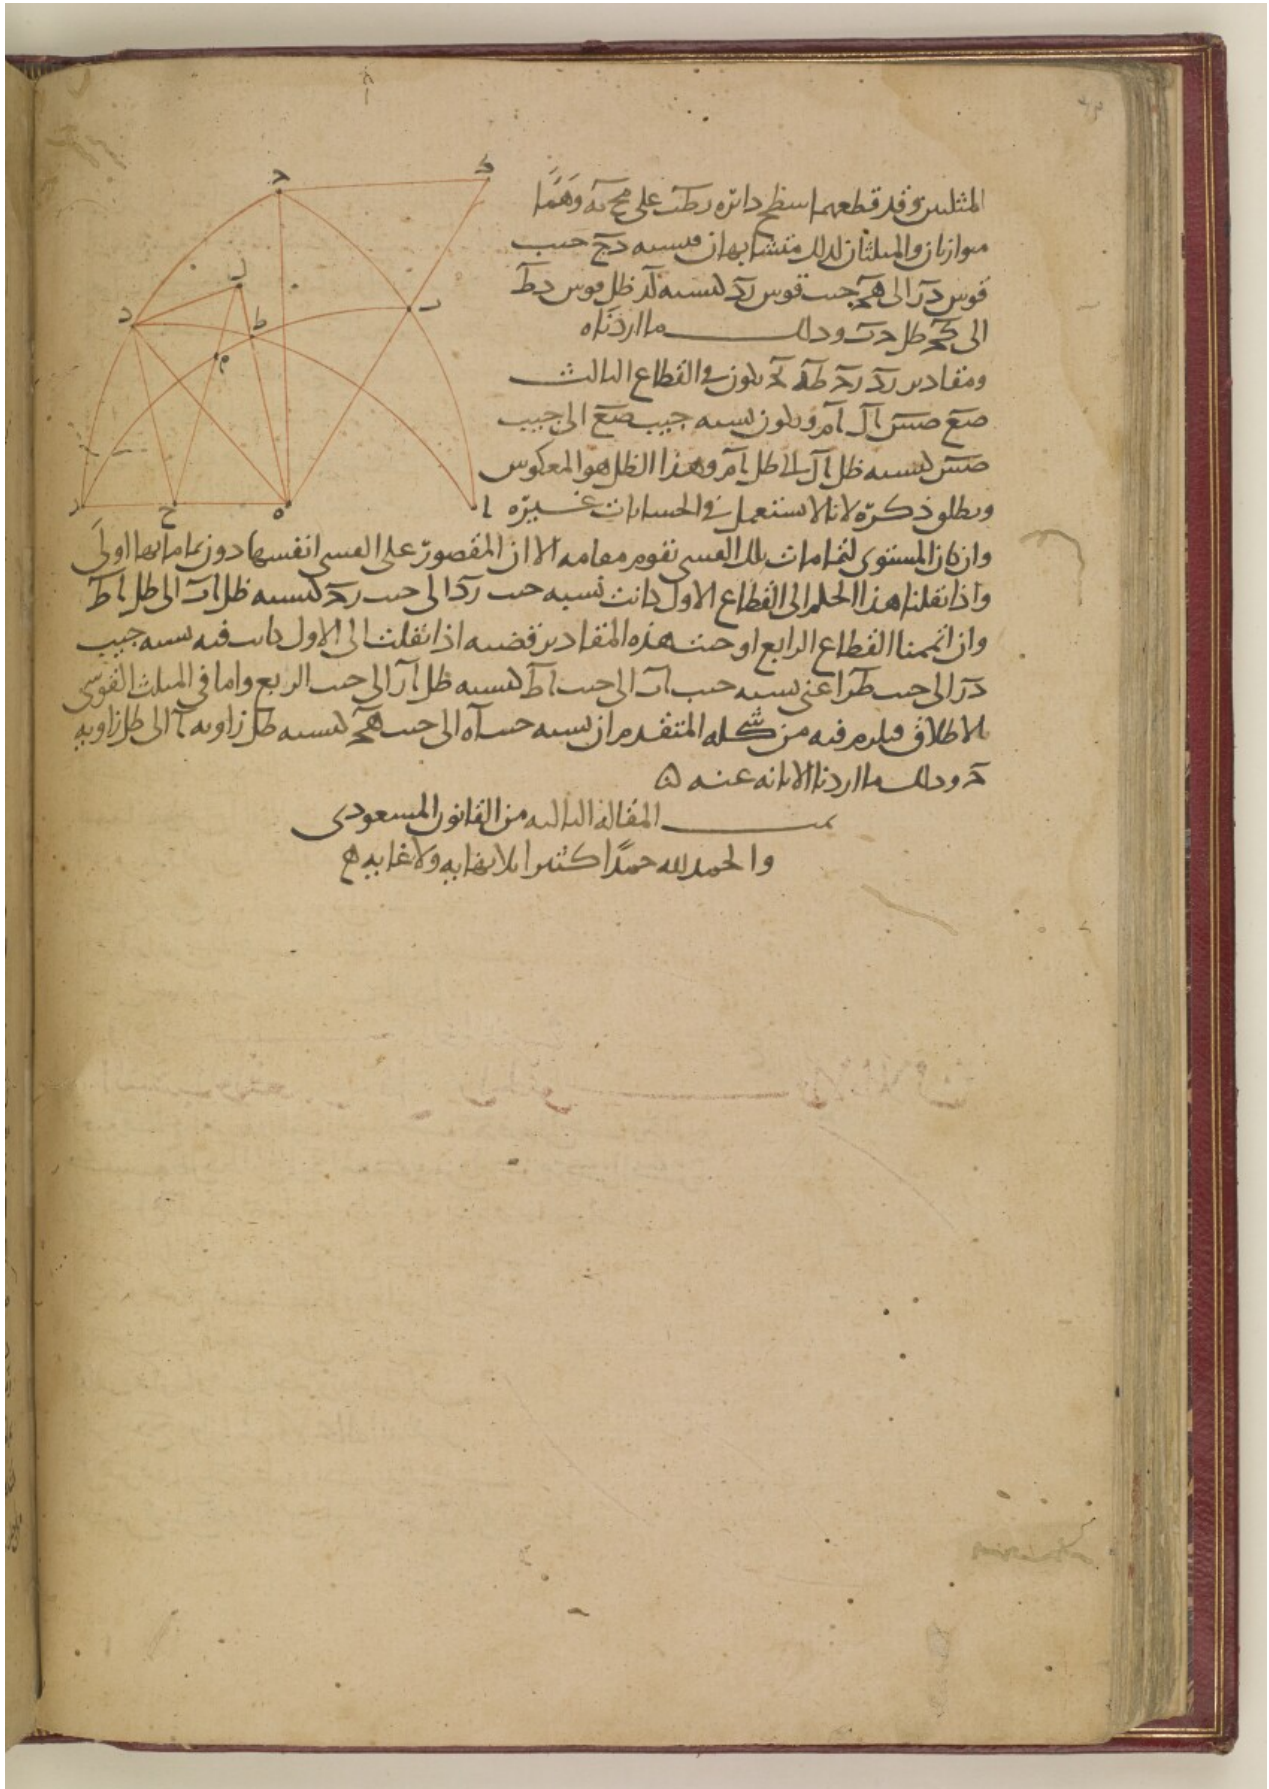 المثلثين وقد قطعهما سطح دائرة رطب على مح كه وهما
متوازيان والمثلثان لذلك متشابهان فنسبه دح جيب
قوس در الى هج جيب قوس رج كنسبه لد ظل قوس دط
الى كج ظل جب وذلك ما اردناه
ومقادير رد رج طد بج تكون في القطاع الثالث
صع صس ال ام وتكون نسبه جيب صع الى جيب
صس كنسبه ظل ال الى ظل ام وهذا الظل هو المعكوس
ونطلق ذكره لانا لا نستعمل في الحسابات غيره
وان كان المستوى لتمامات تلك القسى يقوم مقامه الا ان المقصور على القسى انفسها دون تماماتها اولى
واذا نقلنا هذا الحكم الى القطاع الاول كانت نسبه جيب رد الى جيب رج كنسبه ظل اب الى ظل اط
وان اتممنا القطاع الرابع اوجبت هذه المقادير قضيه اذا نقلت الى الاول كانت فيه نسبه جيب
در الى جيب طر اعنى نسبه جيب اب الى جيب اط كنسبه ظل ار الى جيب الربع واما في المثلث القوسى
بالاطلاق فيلزم فيه من شكله المتقدم ان نسبه جيب اه الى جيب هج كنسبه ظل زاويه ا الى ظل زاويه
ج وذلك ما اردنا الابانه عنه
تمت المقاله الثالثه من القانون المسعودى
والحمد لله حمدًا كثيرا بلا نهايه ولا غايه
ج
ك
ل
د
ط
ب
م
ر
ح
ه
ا